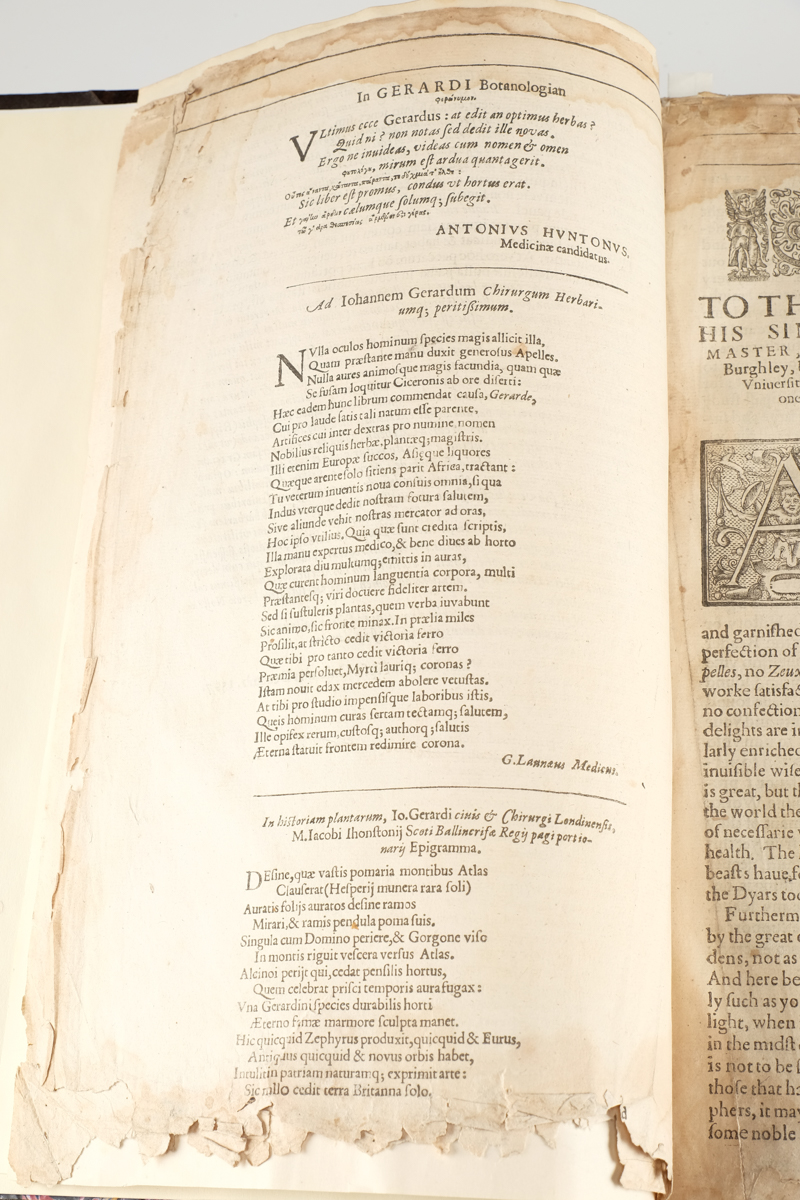 In GERARDI Botanologian
VLtimus ecce Gerardus : at edit an optimus herbas ?
Quid ni ? non notas sed dedit ille novas.
Ergo ne inuideas, videas cum nomen & omen
mirum est ardua quanta gerit.
Sic liber est promus, condus vt hortus erat.
Et cælumque solumq; subegit.
ANTONIVS HVNTONVS,
Medicinæ candidatus.
Ad Iohannem Gerardum Chirurgum Herbari-
umq; peritißimum.
NVlla oculos hominum species magis allicit illa,
Quam præstante manu duxit generosus Apelles.
Nulla aures animosque magis facundia, quam quæ
Se fusam loquitur Ciceronis ab ore diserti:
Hæc eadem hunc librum commendat causa, Gerarde,
Cui pro laude satis tali natum esse parente,
Artifices cui inter dextras pro numine, nomen
Nobilius reliquis herbæ, plantæq; magistris.
Illi etenim Europæ succos, Asięque liquores
Quæque arente solo sitiens parit Africa, tractant :
Tu veterum inuentis noua consuis omnia, si qua
Indus vterque dedit nostram fotura salutem,
Sive aliunde vehit nostras mercator ad oras,
Hoc ipso vtilius, Quia quæ sunt credita scriptis,
Illa manu expertus medico, & bene diues ab horto
Explorata diu multumq; emittis in auras,
Quæ curent hominum languentia corpora, multi
Præstantesq; viri docuere fideliter artem.
Sed si sustuleris plantas, quem verba iuvabunt
Sic animo, sic fronte minax. In prælia miles
Prosilit, at stricto cedit victoria ferro
Quæ tibi pro tanto cedit victoria ferro
Præmia persoluet, Myrti lauriq; coronas ?
Istam nouit edax mercedem abolere vetustas.
At tibi pro studio impensisque laboribus istis,
Queis hominum curas sertam tectamq; salutem,
Ille opifex rerum, custosq; authorq; salutis
Æterna statuit frontem redimire corona.
G. Launæus Medicus.
In historiam plantarum, Io. Gerardi ciuis & Chirurgi Londinensis,
M. Iacobi Ihonstonij Scoti Ballincrisæ Regij pagi portio-
narij Epigramma.
DEsine, quæ vastis pomaria montibus Atlas
Clauserat (Hesperij munera rara soli)
Auratis folijs auratos desine ramos
Mirari, & ramis pendula poma suis.
Singula cum Domino periere, & Gorgone viso
In montis riguit vescera versus Atlas.
Alcinoi perijt qui, cedat pensilis hortus,
Quem celebrat prisci temporis aura fugax :
Vna Gerardini species durabilis horti
Æterno famæ marmore sculpta manet.
Hic quicquid Zephyrus produxit, quicquid & Eurus,
Antiquus quicquid & novus orbis habet,
Intulit in patriam naturamq; exprimit arte :
Sic rallo cedit terra Britanna solo.
TO TH
HIS SIN
MASTER,
Burghley,
Vniuersit
one
A
and garnished
perfection of
pelles, no Zeux
worke satisfac
no confection
delights are in
larly enriched
inuisible wise
is great, but th
the world the
of necessarie v
health. The
beasts haue, fo
the Dyars too
Furtherm
by the great
dens, not as
And here be
ly such as yo
light, when
in the midst
is not to be
those that ha
phers, it may
some noble